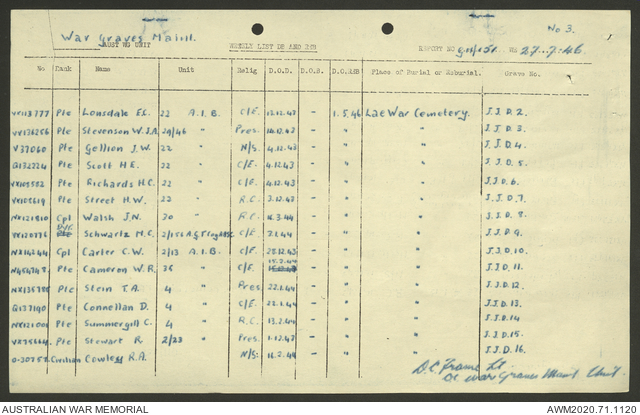 War Graves Maint.
No 3.
AUST WG UNIT WEEKLY LIST DE AND RCH REPORT NO WE 27.7.46
No Rank Name Unit Relig D.O.D. D.O.B. D.O.RCH Place of Burial or Memorial. Grave No.
VX113777 Pte Lonsdale E.L. 22 A.I.B. C/E. 12.12.43 - 1.5.46 Lae War Cemetery. J.J.D.2
VX136256 Pte Stevenson W.J.A. 29/46 " Pres. 14.12.43 - " " J.J.D.3
V37060 Pte Gellion J.W. 22 " N/S. 4.12.43 - " " J.J.D.4.
Q132224 Pte Scott H.E. 22 " C/E. 4.12.43 - " " J.J.D.5
Pte Richards H.C. 22 " C/E. 4.12.43 - " " J.J.D.6.
Pte Street H.W. 22 " R.C. 3.12.43 - " " J.J.D.7.
NX121810 Cpl Walsh J.N. 30 " R.C. 3.44 - " " J.J.D.8.
Pte Schwartz M.C. C/E. 7.1.44 - " " J.J.D.9
NX14244 Cpl Carter C.W. 2/13 A.I.B. C/E. 28.12.43 - " " J.J.D.10.
Pte Cameron W.R. 36 " C/E. 15.2.44 - " " J.J.D.11.
Pte Stein T.A. 4 " Pres. 22.1.44 - " " J.J.D.12
Q137190 Pte Connellan D. 4 " C/E. 22.1.44 - " " J.J.D.13.
NX121001 Pte Summergill C. 4 " R.C. 13.2.44 - " " J.J.D.14
Pte Stewart R 2/23 " Pres. 1.12.43 - " " J.J.D.15.
Civilian Cowless R.A. N/S. 14.2.44 - " " J.J.D.16.
D.C. Frame Lt
OC War Graves Maint Unit.
AUSTRALIAN WAR MEMORIAL AWM2020.71.1120